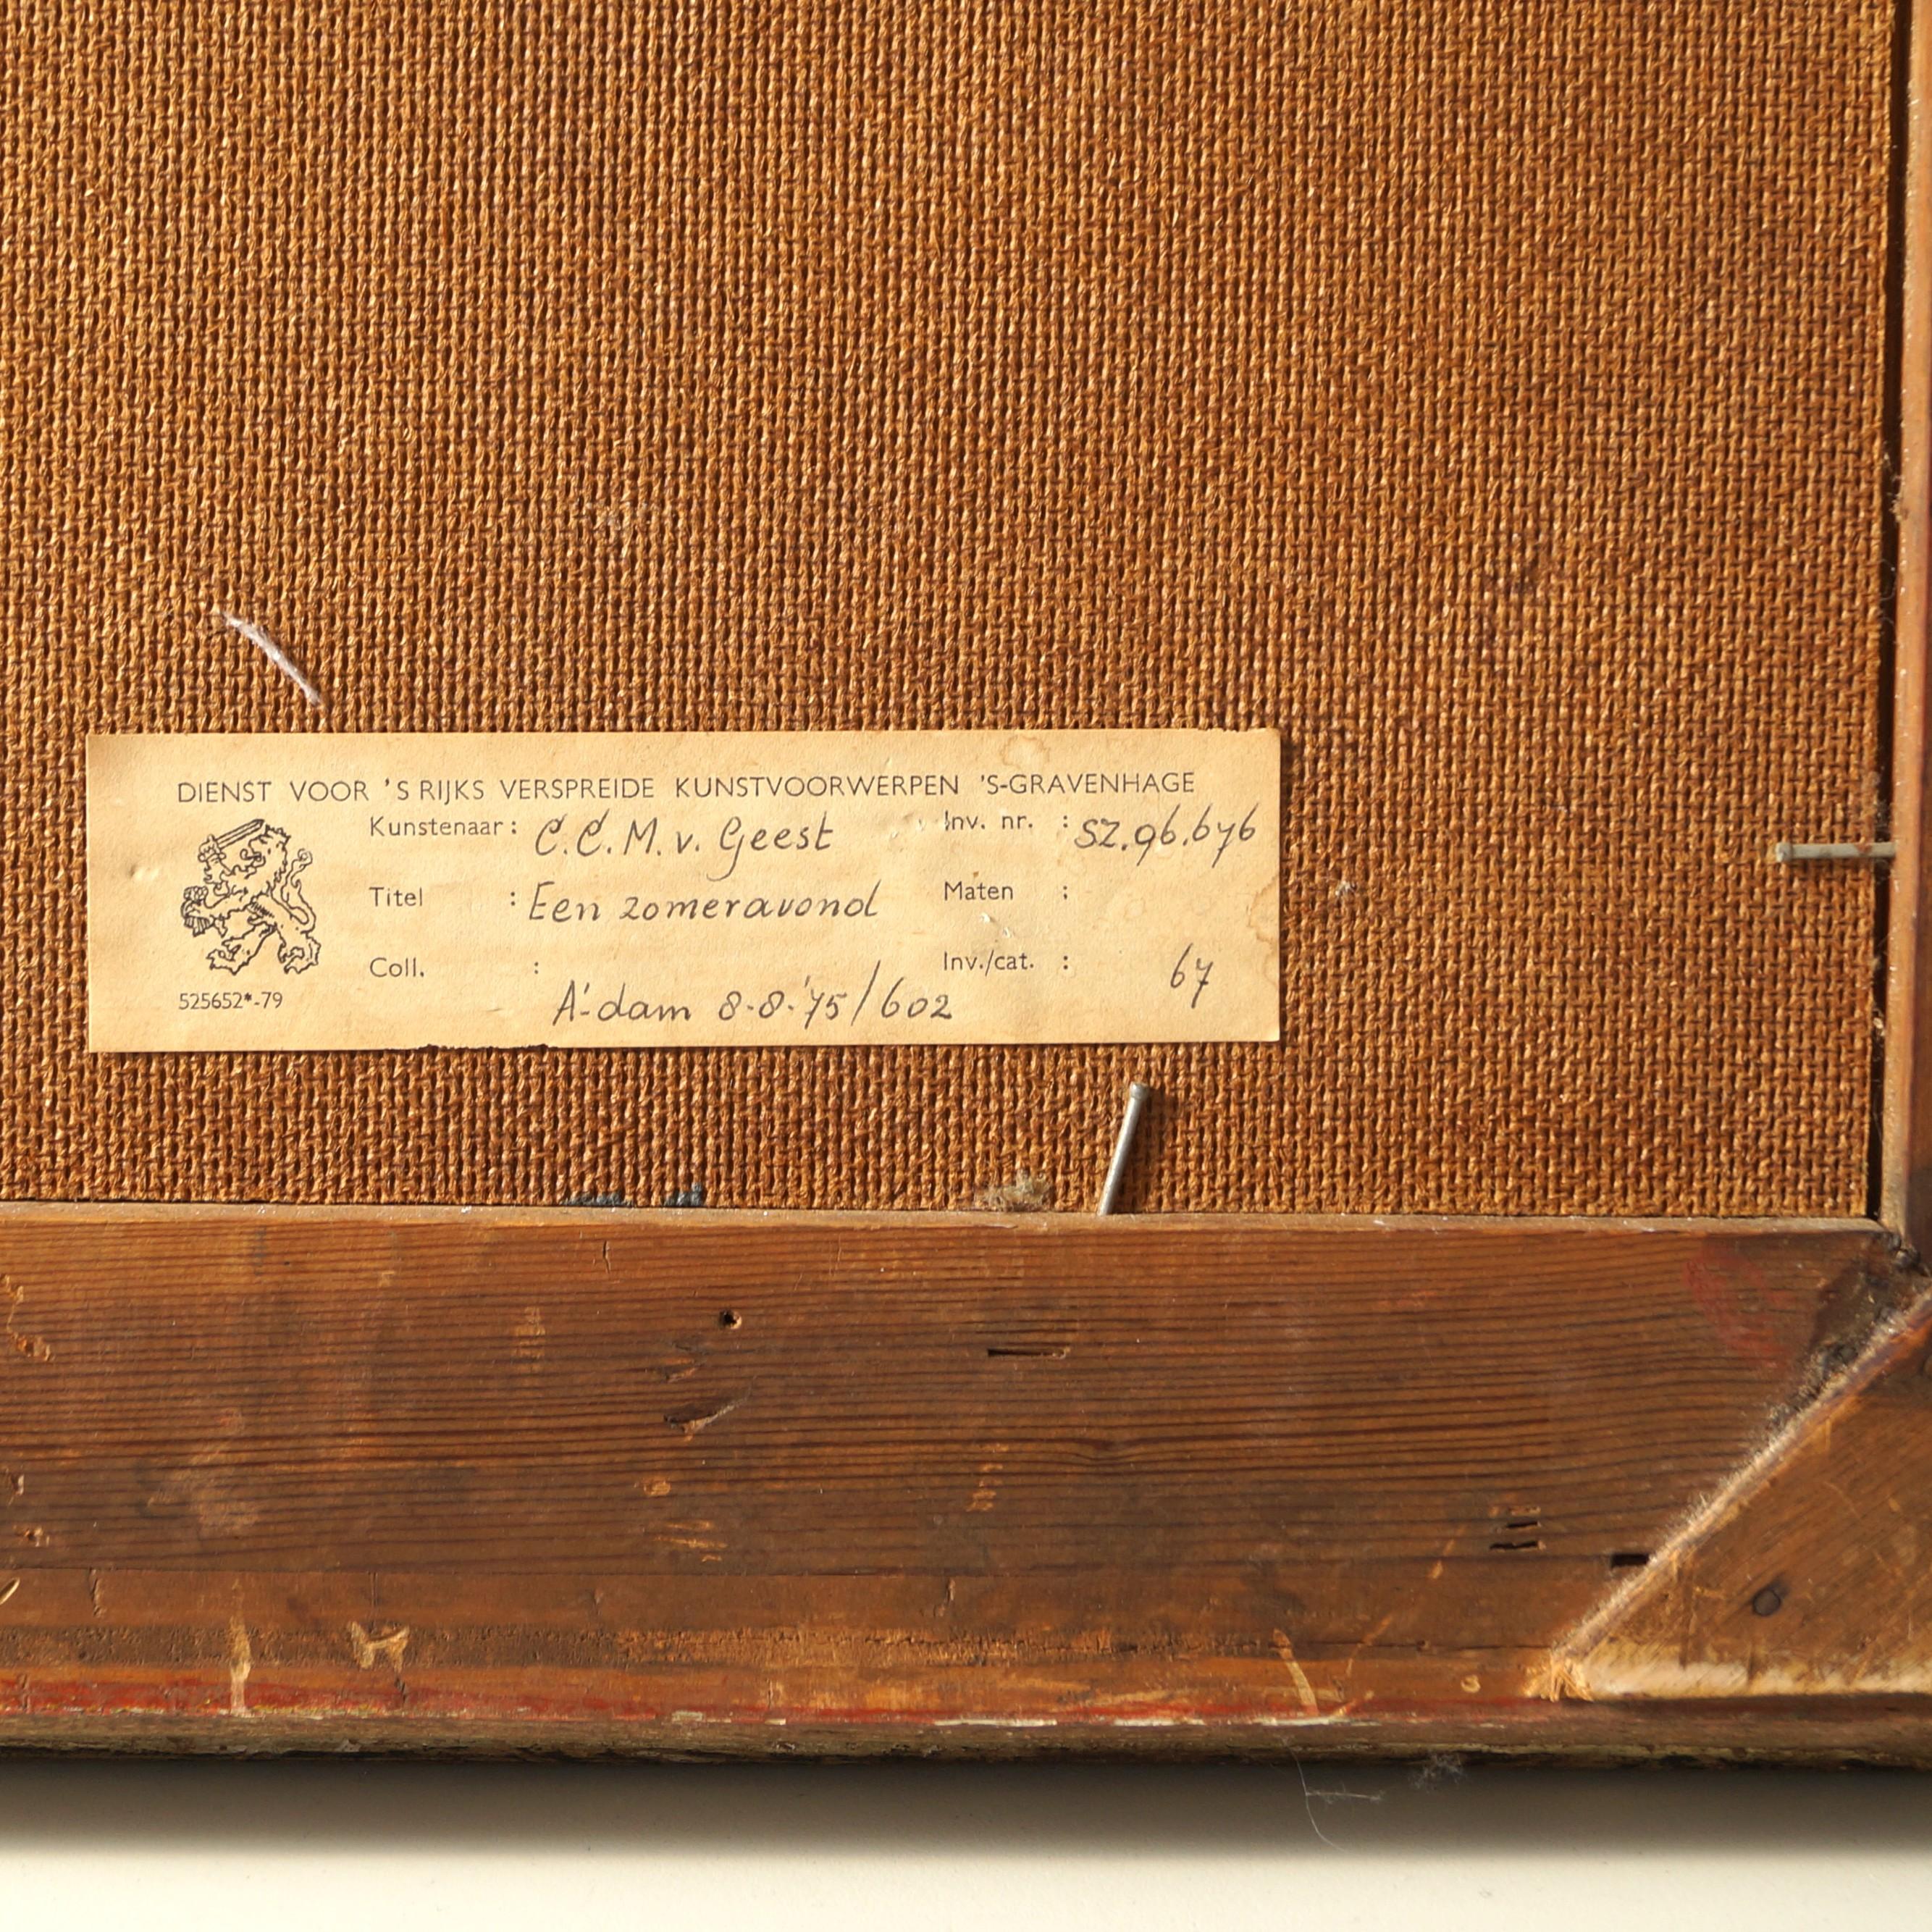 DIENST VOOR 'S RIJKS VERSPREIDE KUNSTVOORWERPEN 'S-GRAVENHAGE
Kunstenaar: C.C.M. v. Geest Inv. nr. : SZ.96.676
Titel : Een zomeravond Maten :
Coll. : Inv./cat. : 67
525652*-79 A'dam 8-8-'75/602